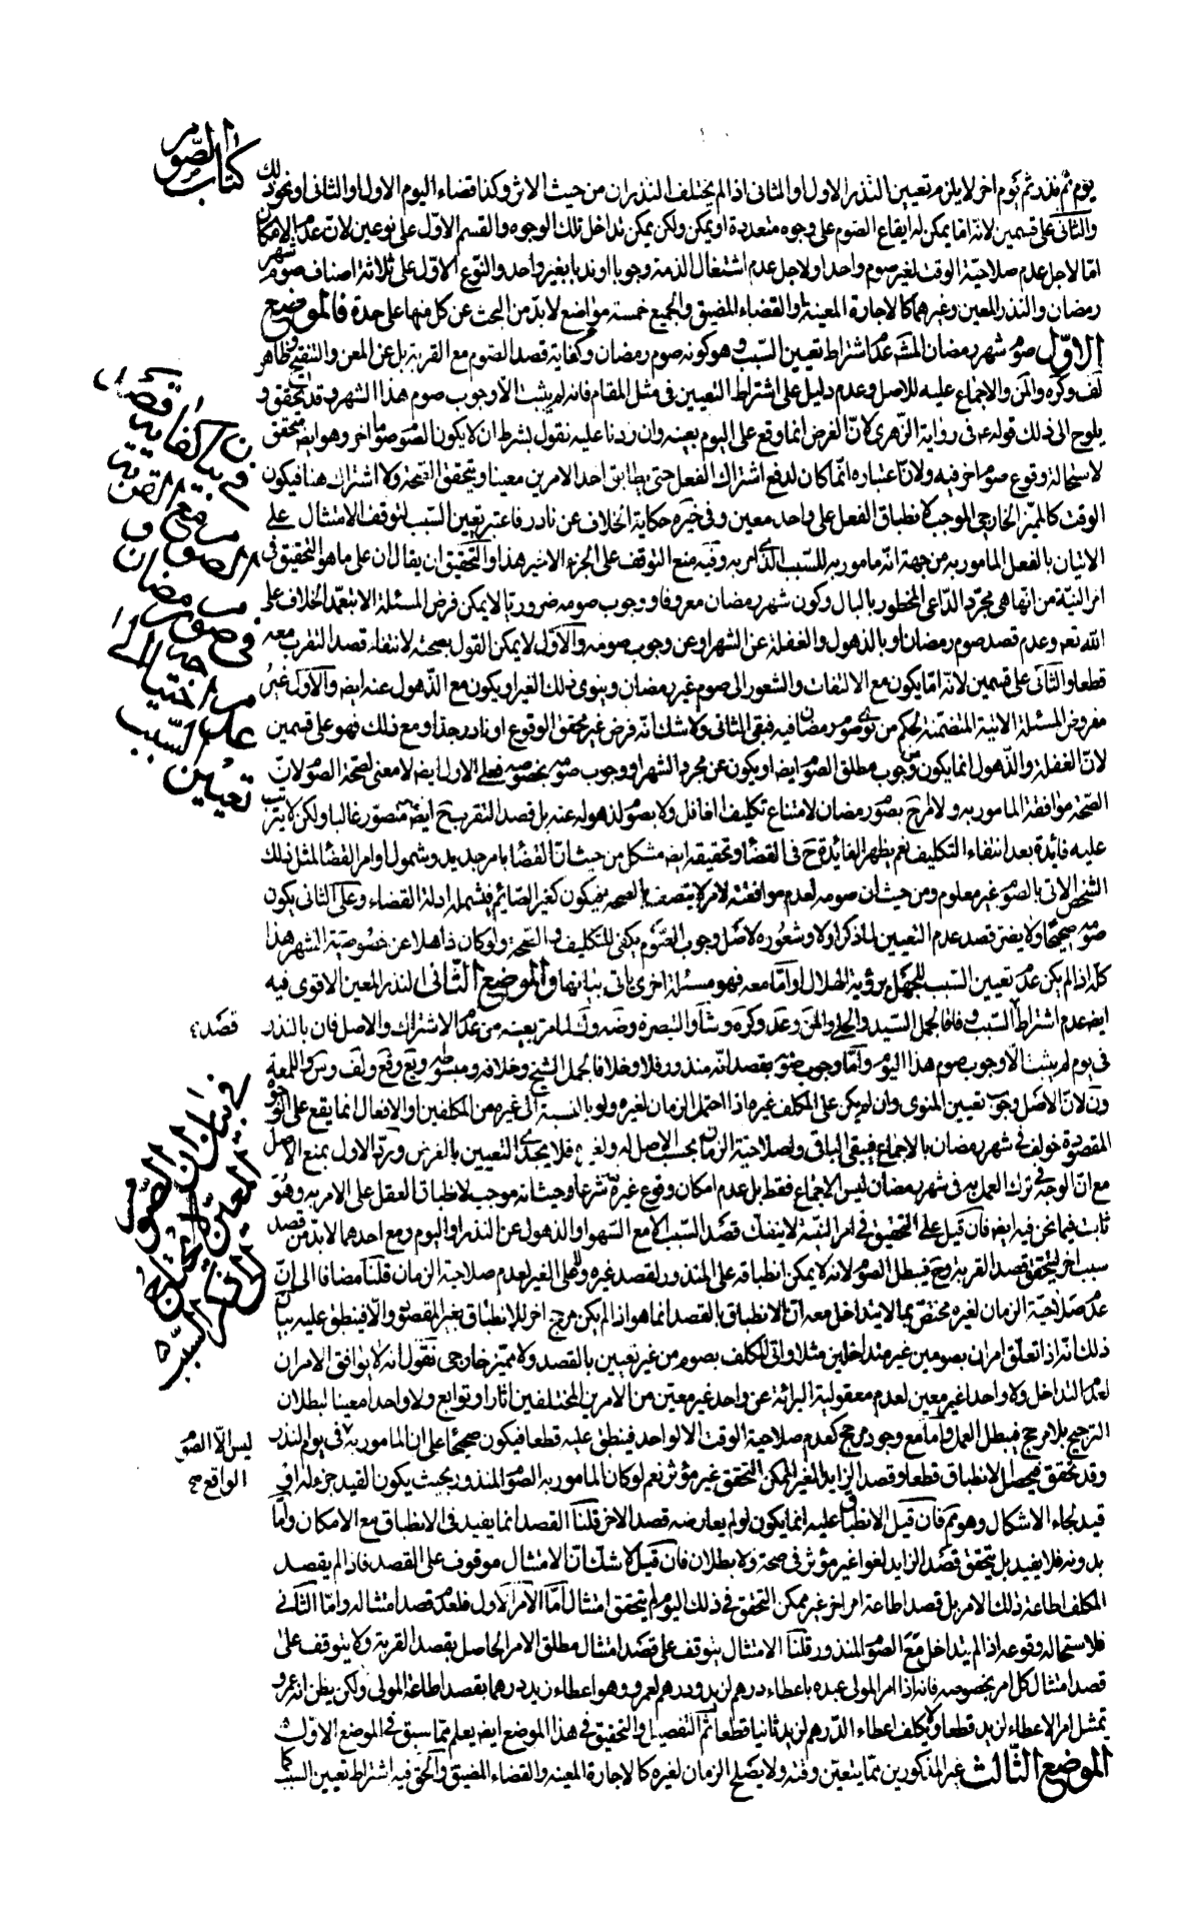 كتاب الصّوم
يوم ثم بنذر ثم يوم اخر لا يلزم تعيين النذر الاول او الثانى اذا لم يختلف النذران من حيث الاثر وكذا قضاء اليوم الاول او الثانى او نحو ذلك
والثانى على قسمين لانّه امّا يمكن له ايقاع الصّوم على وجوه متعددة او يمكن ولكن يمكن تداخل تلك الوجوه والقسم الاوّل على نوعين لان عدم الامكان
امّا لاجل عدم صلاحيّة الوقت لغير صوم واحد او لاجل عدم اشتغال الذمة وجوبا او ندبا بغير واحد والنّوع الاوّل على ثلاثة اصناف صوم شهر
رمضان والنذر المعين وغيرهما كالاجارة المعينة والقضاء المضيق والجميع خمسة مواضع لا بدّ من البحث عن كل منها على حدة فالموضع
الاوّل صوم شهر رمضان المش عدم اشتراط تعيين السّبب وهو كونه صوم رمضان وكفاية قصد الصّوم مع القربة بل عن المعتبر والتنقيح وظاهر
لف وكره والمن والاجماع عليه للاصل وعدم دليل على اشتراط التعيين فى مثل المقام فانه لم يثبت الا وجوب صوم هذا الشهر وقد تحقق و
يلوح الى ذلك قوله ع فى رواية الزّهرى لانّ الفرض انما وقع على اليوم بعينه وان زدنا عليه نقول بشرط ان لا يكون الصّوم صوما اخر وهو ايض متحقق
لاستحالة وقوع صوم اخر فيه ولانّ اعتباره انّما كان لدفع اشتراك الفعل حتى يطابق احد الامرين معينا ويتحقق الصّحة ولا اشتراك هنا فيكون
الوقت كالمميّز الخارجى الموجب لانطباق الفعل على واحد معين وفى خيره حكاية الخلاف عن نادر فاعتبر تعيين السّبب لتوقف الامتثال على
الاتيان بالفعل المامور به من جهة انّه مامور به للسّبب الذى امر به وفيه منع التوقف على الجزء الاخير هذا والتّحقيق ان يقال ان على ما هو التحقيق فى
امر النيّة من انها هى مجرّد الدّاعى المخطور بالبال وكون شهر رمضان معروفا ووجوب صومه ضروريّا لا يمكن فرض المسئلة الا بتعمّد الخلاف على
اللّه تع وعدم قصد صوم رمضان او بالذهول والغفلة عن الشهر او عن وجوب صومه والاوّل لا يمكن القول بصحته لانتفاء قصد التقرب معه
قطعا والثّانى على قسمين لانّه امّا يكون مع الالتفات والشعور الى صوم غير رمضان وينوى ذلك الغير او يكون مع الذّهول عنه ايض والاوّل غير
مفروض المسئلة الاتية المتضمنة لحكم من نوى صوم رمضان فيه فبقى الثانى ولا شك انّه فرض غير محقق الوقوع او نادر جدّا ومع ذلك فهو على قسمين
لانّ الغفلة والذّهول انما يكون عن وجوب مطلق الصّوم ايضا او يكون عن مجرد الشهر او وجوب صومه بخصوصه فعلى الاول ايض لا معنى لصحّة الصّوم لانّ
الصّحة موافقة المامور به ولا امر ح بصوم رمضان لامتناع تكليف الغافل ولا بصوم لذهوله عنه بل قصد التقرب ح ايضا متصوّر غالبا ولكن لا يترتب
عليه فائدة بعد انتفاء التكليف نعم يظهر الفائدة ح فى القضاء وتحقيقه ايض مشكل من حيث ان القضاء بامر جديد وشمول اوامر القضاء لمثل ذلك
الشخص الاتى بالصّوم غير معلوم ومن حيث ان صومه لعدم موافقته لامر لا يتصف بالصحه فيكون كغير الصّائم فيشمله ادلة القضاء وعلى الثانى يكون
صومه صحيحا ولا يضر قصد عدم التعيين لما ذكر اولا وشعوره لاصل وجوب الصّوم يكفى للتكليف والصّحة ولو كان ذاهلا عن خصوصيّة الشهر هذا
كلّه اذا لم يكن عدم تعيين السّبب للجهل برؤية الهلال وامّا معه فهو مسئلة اخرى ياتى بيانها والموضع الثّانى النذر المعين الاقوى فيه
ايض عدم اشتراط السّبب وفاقا لجمل السّيد والحلى والمن وعد وكره وشا والتبصرة وضه وك لما مرّ بعينه من عدم الاشتراك والاصل فان بالنذر
فى يوم لم يثبت الّا وجوب صوم هذا اليوم وامّا وجوب صومه بقصد انّه منذور فلا وخلافا لجمل الشيخ وخلافه ومبسوطه ويع وفع ولف وس واللمعة
ون لانّ الاصل وجوب تعيين المنوى وان لم يكن على المكلف غيره اذا احتمل الزمان لغيره ولو بالنسبة الى غيره من المكلفين او الافعال انما يقع على الوجوه
المقصودة خولف فى شهر رمضان بالاجماع فيبقى الباقى ولصلاحيّة الزمان بحسب الاصل له ولغيره فلا يجدى التعيين بالفرض وردّ الاول بمنع الاصل
مع انّ الوجه فى ترك العمل به فى شهر رمضان ليس الاجماع فقط بل عدم امكان وقوع غيره فيه شرعا وحيث انه موجب لانطباق الفعل على الامر به وهو
ثابت فيما نحن فيه ايض فان قيل على التحقيق فى امر النيّة لا ينفك قصد السّبب الا مع السّهو او الذهول عن النذر او اليوم ومع احدهما لا بدّ من قصد
سبب اخر ليتحقق قصد القربة وح فيبطل الصّوم لانه لا يمكن انطباقه على المنذور لقصد غيره ولا على الغير لعدم صلاحية الزمان قلنا مضافا الى انّ
عدم صلاحيّة الزمان لغيره مختصّ بما لا يتداخل معه انّ الانطباق بالقصد انما هو اذا لم يكن مرجح اخر للانطباق بغير المقصود والّا فينطبق عليه بيان
ذلك انّه اذا تعلّق امران بصومين غير متداخلين مثلا واتى المكلف بصوم من غير تعيين بالقصد ولا مميّز خارجى نقول انه لا يوافق الامران
لعدم التداخل ولا واحدا غير معين لعدم معقولية البرائة عن واحد غير معيّن من الامرين المختلفين اثارا وتوابع ولا واحدا معينا لبطلان
الترجيح بلا مرجح فيبطل العمل وامّا مع وجود مرجح كعدم صلاحية الوقت الا لواحد فينطبق عليه قطعا فيكون صحيحا على ان المامور به فى يوم النذر
وقد تحقق فيحصل الانطباق قطعا وقصد الزايد الغير الممكن التحقق غير مؤثر نعم لو كان المامور به الصّوم المنذور بحيث يكون القيد جزء له او
قيد لجاء الاشكال وهو مم فان قيل الانطباق عليه انما يكون لو لم يعارضه قصد الاخر قلنا القصد انما يفيد فى الانطباق مع الامكان وامّا
بدونه فلا يفيد بل يتحقق قصد الزايد لغوا غير مؤثر فى صحة ولا بطلان فان قيل لا شك انّ الامتثال موقوف على القصد فاذا لم يقصد
المكلف اطاعة ذلك الامر بل قصد اطاعة امر اخر غير ممكن التحقق فى ذلك اليوم لم يتحقق امتثال امّا الامر الاول فلعدم قصد امتثاله وامّا الثّانى
فلاستحالة وقوعه اذا لم يتداخل مع الصّوم المنذور قلنا الامتثال يتوقف على قصد امتثال مطلق الامر الحاصل بقصد القربة ولا يتوقف على
قصد امتثال كل امر بخصوصه فانه اذا امر المولى عبده باعطاء درهم لزيد ودرهم لعمرو وهو اعطاء زيد درهما بقصد اطاعة المولى ولكن يظن انه عمرو
يمتثل امر الاعطاء لزيد قطعا ولا يكلف اعطاء الدّرهم لزيد ثانيا قطعا ثم التفصيل والتحقيق فى هذا الموضع ايض يعلم مما سبق فى الموضع الاوّل
الموضع الثّالث غير المذكورين ممّا يتعيّن وقته ولا يصلح الزمان لغيره كالاجارة المعينه والقضاء المضيق والحق فيه اشتراط تعيين السّبب كما
فى بيان كفاية قصد
الصوم مع القربة
فى صوم رمضان و
عدم احتياج الى
تعيين السّبب
قصد
فى بيان ان الصّوم
المعيّن لا يحتاج
الى ذكر السّبب
ليس الّا الصّوم
الواقع